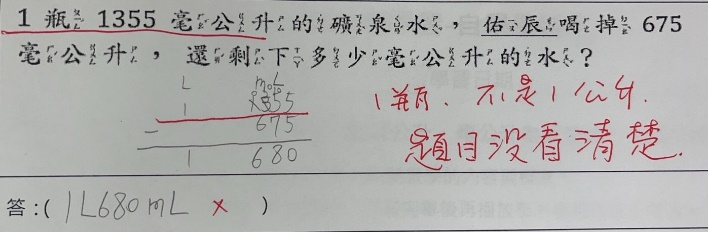 1 瓶 1355 毫公升的礦泉水，佑辰喝掉 675
毫公升，還剩下多少毫公升的水？
L mL
1 355
－ 675
1 680
1瓶．不是1公升．
題目没看清楚．
答：( 1L680mL × )